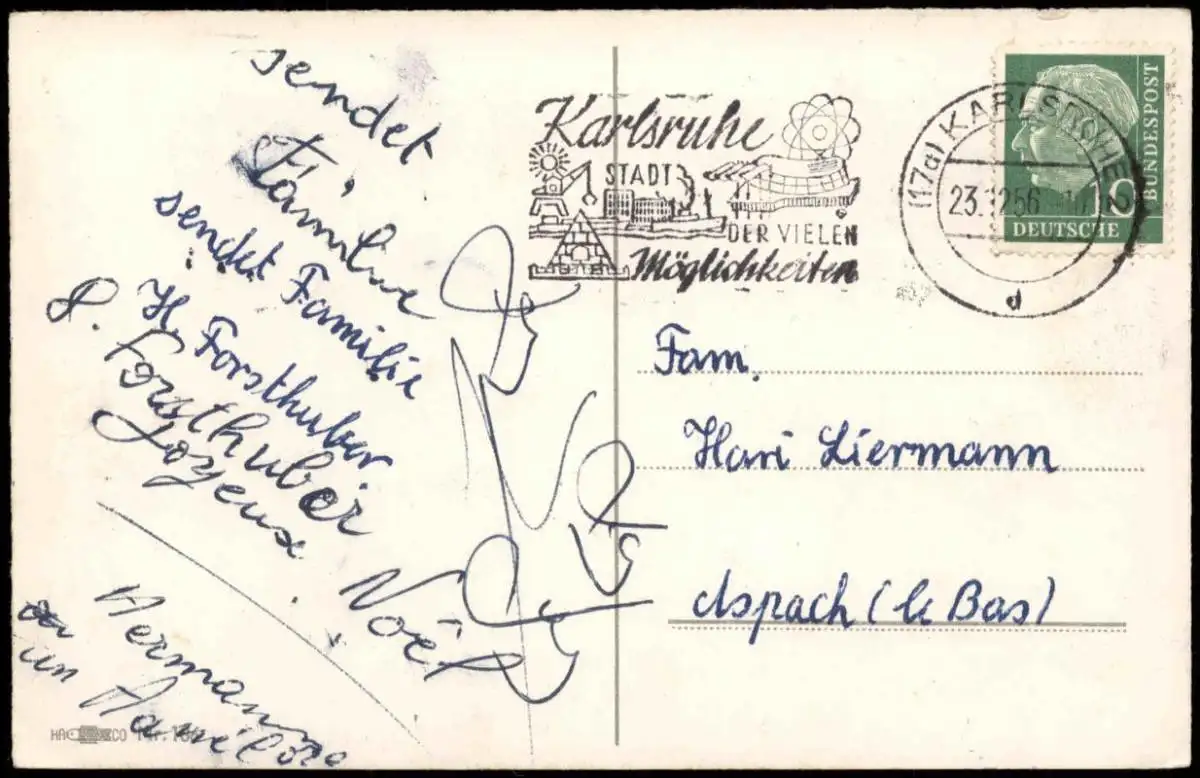 sendet
Familie
sendet Familie
H. Forsthuber
Forsthuber
Joyeux Noël
Hermann
un
HA CO
Karlsruhe
STADT
DER VIELEN
Möglichkeiten
(17a) KARLSRUHE 2
23.12.56
d
10
DEUTSCHE
BUNDESPOST
Fam.
Hari Liermann
Aspach (le Bas)